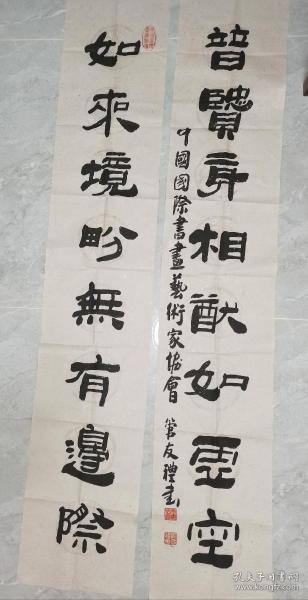 普賢身相猷如虛空
中國國際書畫藝術家協會 管友禮書
如來境畍無有邊際
孔夫子旧书网